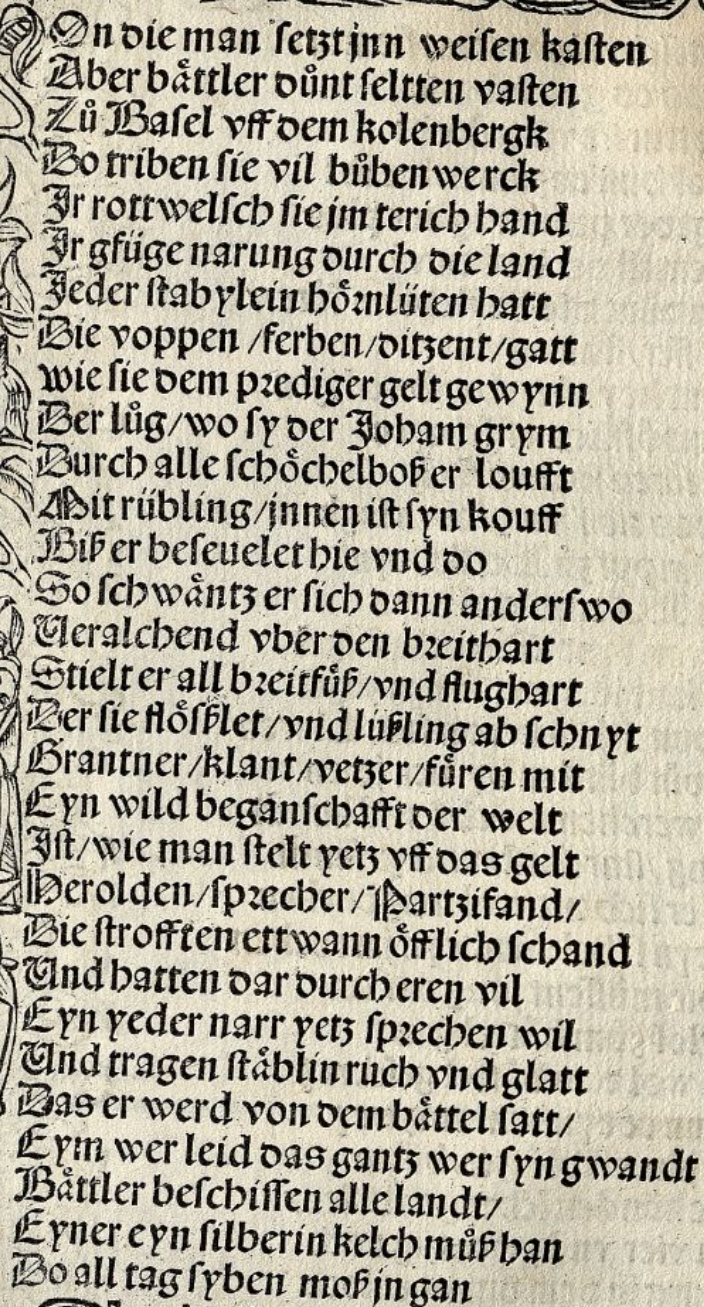 On die man setzt jnn weisen kasten
Aber båttler důnt seltten vasten
Zů Basel vff dem kolenbergk
Do triben sie vil bůbenwerck
Jr rottwelsch sie jm terich hand
Jr gfüge narung durch die land
Jeder stabylein hörnlüten hatt
Die voppen /ferben/ditzent/gatt
wie sie dem prediger gelt gewynn
Der lůg/wo sy der Joham grym
Durch alle schöchelboß er loufft
Mit rübling/jnnen ist syn kouff
Biß er beseuelet hie vnd do
So schwåntz er sich dann anderswo
Veralchend vber den breithart
Stielt er all breitfůß/vnd flughart
Der sie flößlet/vnd lüßling ab schnyt
Grantner/klant/vetzer/fůren mit
Eyn wild beganschafft der welt
Jst/wie man stelt yetz vff das gelt
Herolden/sprecher/Partzifand/
Die strofften ettwann öfflich schand
Vnd hatten dar durch eren vil
Eyn yeder narr yetz sprechen wil
Vnd tragen ståblin ruch vnd glatt
Das er werd von dem båttel satt/
Eym wer leid das gantz wer syn gwandt
Båttler beschissen alle landt/
Eyner eyn silberin kelch můß han
Do all tag syben moß jn gan